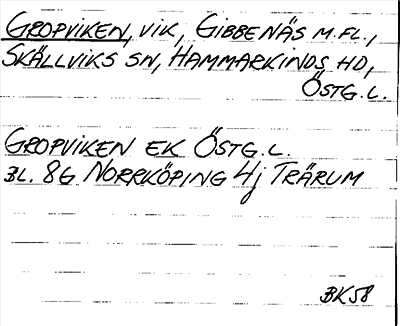 GROPVIKEN, VIK, GIBBENÄS M.FL.,
SKÄLLVIKS SN, HAMMARKINDS HD,
ÖSTG.L.
GROPVIKEN EK ÖSTG.L.
BL. 8G NORRKÖPING 4j TRÄRUM
BK58